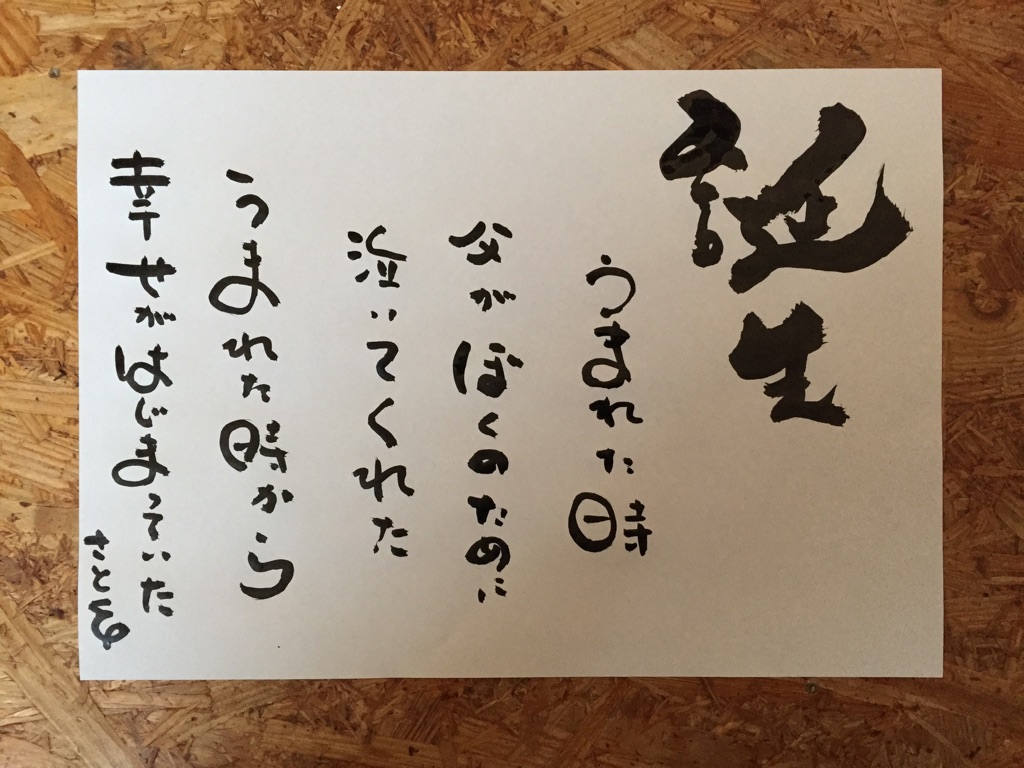 誕生
うまれた時
父がぼくのために
泣いてくれた
うまれた時から
幸せがはじまっていた